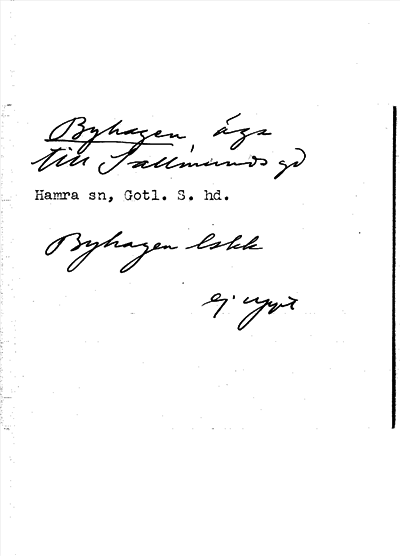 Byhagen, äga
till Sallmunds gd
Hamra sn, Gotl. S. hd.
Byhagen lskk
ej uppt